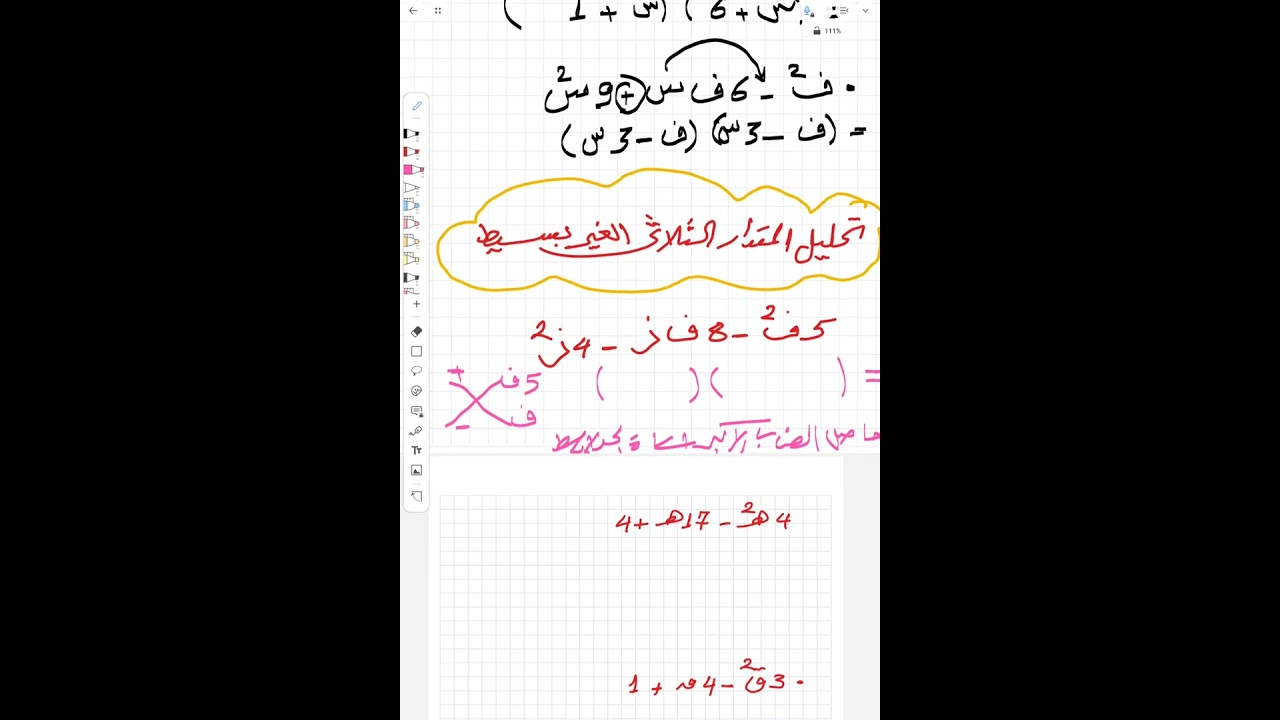 (س + 6) (س + 1)
111%
• ف² - 6 ف س + 9 س²
= (ف - 3 س) (ف - 3 س)
تحليل المقدار الثلاثي الغير بسيط
5 ف² - 8 ف ز - 4 ز²
= ( ) ( ) 5 ف +
ف -
حاصل الضرب الأكبر إشارة الحد الأوسط
4 هـ² - 17 هـ + 4
• 3 ق² - 4 ق + 1
Tт